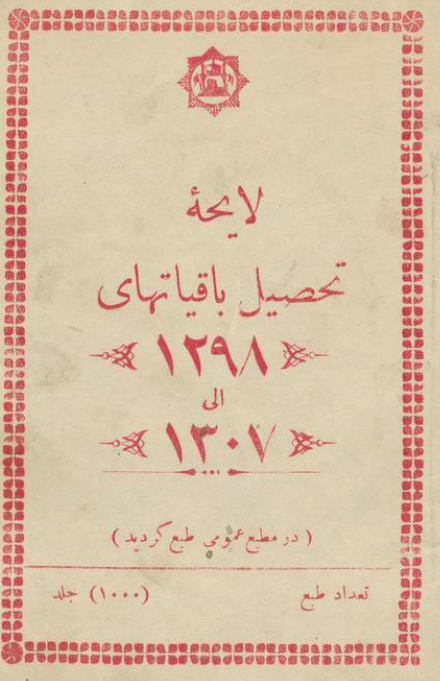 لایحهٔ
تحصیل باقیاتهای
۱۲۹۸
الی
۱۳۰۷
(در مطبع عمومی طبع گردید)
تعداد طبع (۱۰۰۰) جلد